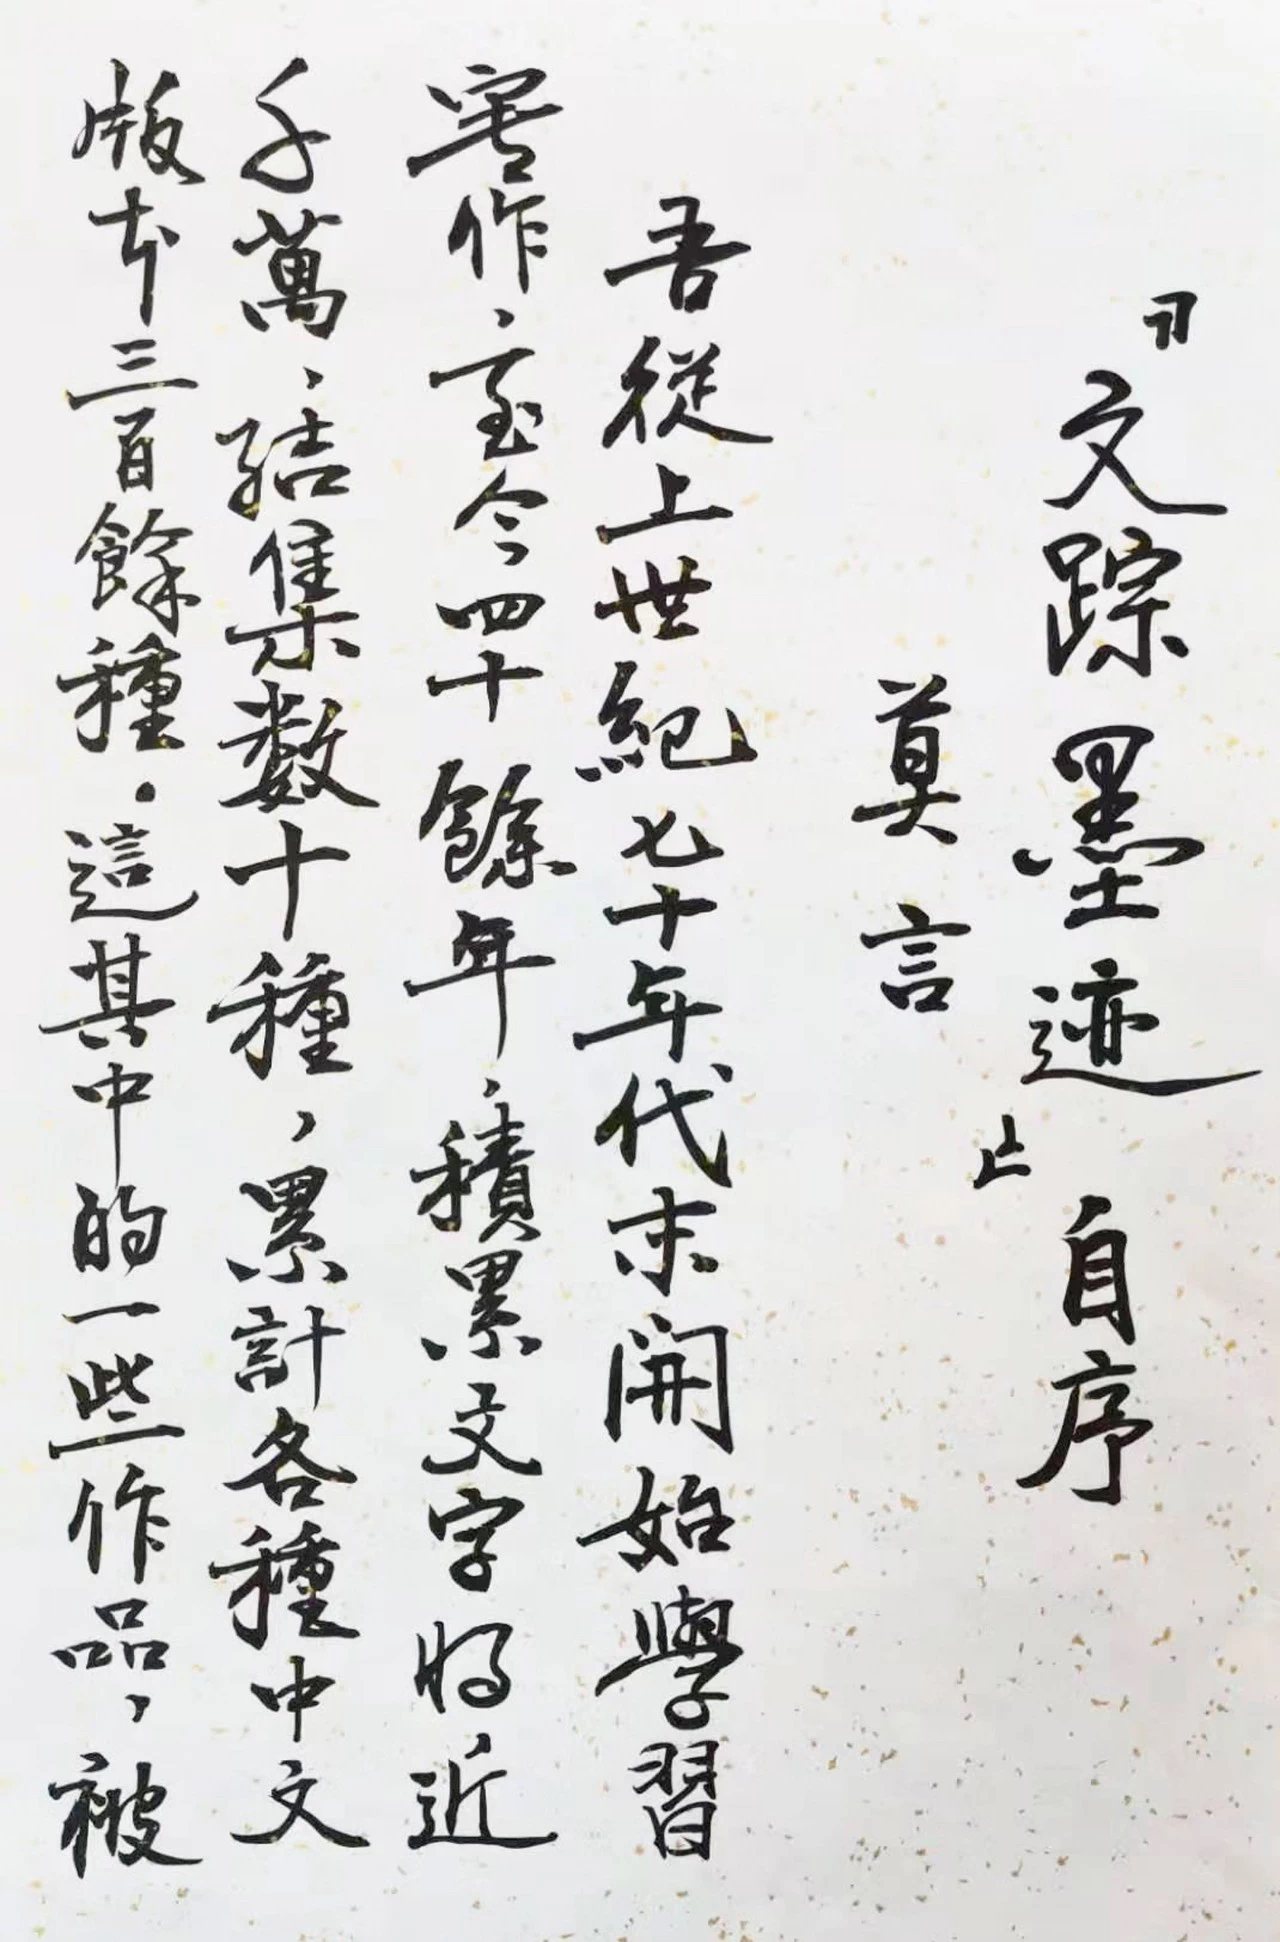 『文踪墨迹』自序
莫言
吾從上世紀七十年代末開始學習
寫作，至今四十餘年，積累文字將近
千萬，結集数十種，累計各種中文
版本三百餘種。這其中的一些作品，被